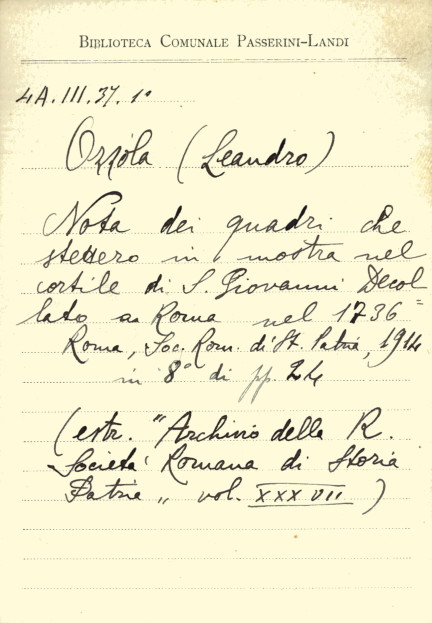 BIBLIOTECA COMUNALE PASSERINI-LANDI
4A.III.37.1°
Ozzòla (Leandro)
Nota dei quadri che
stettero in mostra nel
cortile di S. Giovanni Decol=
lato a Roma nel 1736
Roma, Soc. Rom. di St. Patria, 1914
in 8° di pp. 24
(estr. "Archivio della R.
Società Romana di Storia
Patria „ vol. XXXVII )